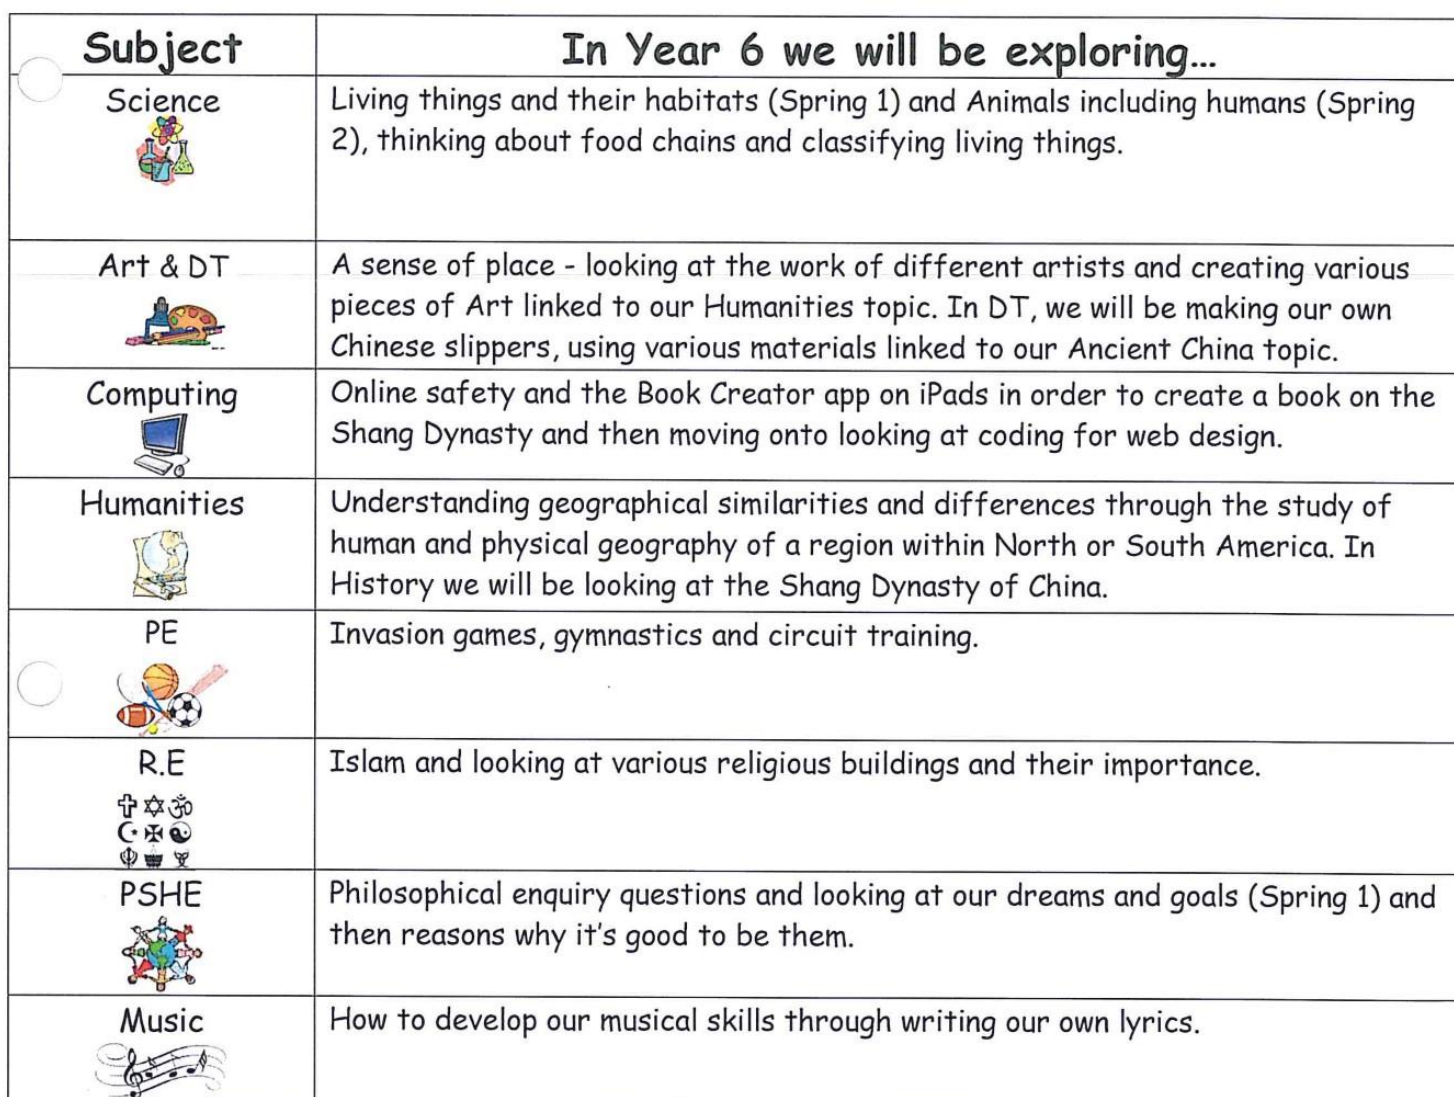 Subject
In Year 6 we will be exploring...
Science
Living things and their habitats (Spring 1) and Animals including humans (Spring
2), thinking about food chains and classifying living things.
Art & DT
A sense of place - looking at the work of different artists and creating various
pieces of Art linked to our Humanities topic. In DT, we will be making our own
Chinese slippers, using various materials linked to our Ancient China topic.
Computing
Online safety and the Book Creator app on iPads in order to create a book on the
Shang Dynasty and then moving onto looking at coding for web design.
Humanities
Understanding geographical similarities and differences through the study of
human and physical geography of a region within North or South America. In
History we will be looking at the Shang Dynasty of China.
PE
Invasion games, gymnastics and circuit training.
R.E
Islam and looking at various religious buildings and their importance.
PSHE
Philosophical enquiry questions and looking at our dreams and goals (Spring 1) and
then reasons why it's good to be them.
Music
How to develop our musical skills through writing our own lyrics.